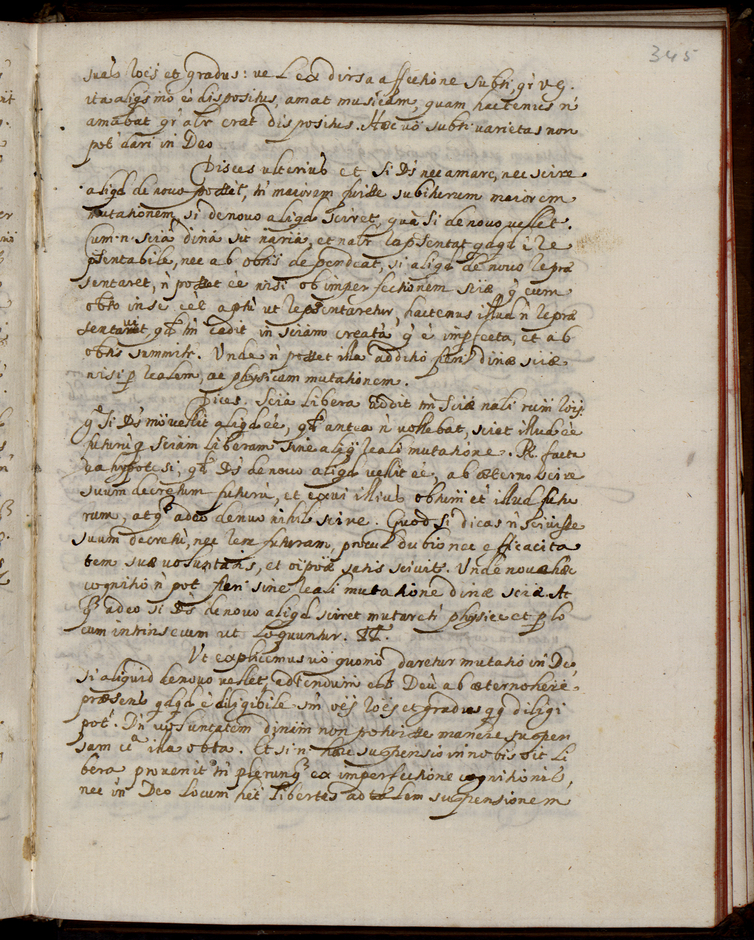 345
suas locis et gradus: vel ex divsa affectione subti, qr v.g.
ita aliqs mō ē dispositus, amat musicam, quam hactenus ñ
amabat qr alr erat dispositus. Haec vō subti varietas non
pot dari in Deo
Disces ulterius et si Ds nec amare, nec scire
aliqd de novo posset, tñ maiorem fuisse subiturum maiorem
mutationem, si de novo aliqd sciret, quā si de novo vellet.
Cum n. sciā dinā sit nāria, et nalr repsentat qdqd ē re
psentabile, nec ab obtis dependeat, si aliqd de novo repræ
sentaret, ñ posset ēe nisi ob imperfectionem sciæ q̄ cum
obto in se eet aptū ut repsentaretur, hactenus illud ñ repræ
sentavit, qd tñ cadit in sciām creatā q̄ ē impfecta, et ab
obtis summitr. Unde ñ posset illa additio fieri dinæ sciæ
nisi p realem, ac physicam mutationem.
Dices. Sciā libera addit tñ sciæ nali rūm
q̄ si Ds mō vellit aliqd ēe, qd antea ñ volebat, sciet illud ēe
futurū q sciam liberam sine aliq reali mutatione. R. facta
ea hypotesi, qd Ds de novo aliqd vellit ēe, ab æterno scire
suum decretum futurū, et ex vi illius obtum et illud futu
rum, atq adeo denuo nihil scire. Quod si dicas ñ scivisse
suum decretū, nec rem futuram, procul dubio nec efficacita
tem suæ voluntatis, et oīpōæ satis scivit. Unde nova hæc
cognitio ñ pot fieri sine reali mutatione dinæ sciæ At
q adeo si Ds de novo aliqd sciret mutaretr physice et p lo
cum intrinsecum ut loquuntur.
Ut explicemus vō quomō daretur mutatio in Deo
si aliquid de novo vellet, adtendum est Deū ab æterno here
præsens qdqd ē diligibile sm oēs locs et gradus qq diligi
pot. In voluntatem divinam non potuisse manere suspen
sam ca illa obta. Et si n. hæc suspensio in nobis sit li
bera provenit tñ plerunq ex imperfectione cognitionis,
nec in Deo locum het libertas ad talem suspensionem